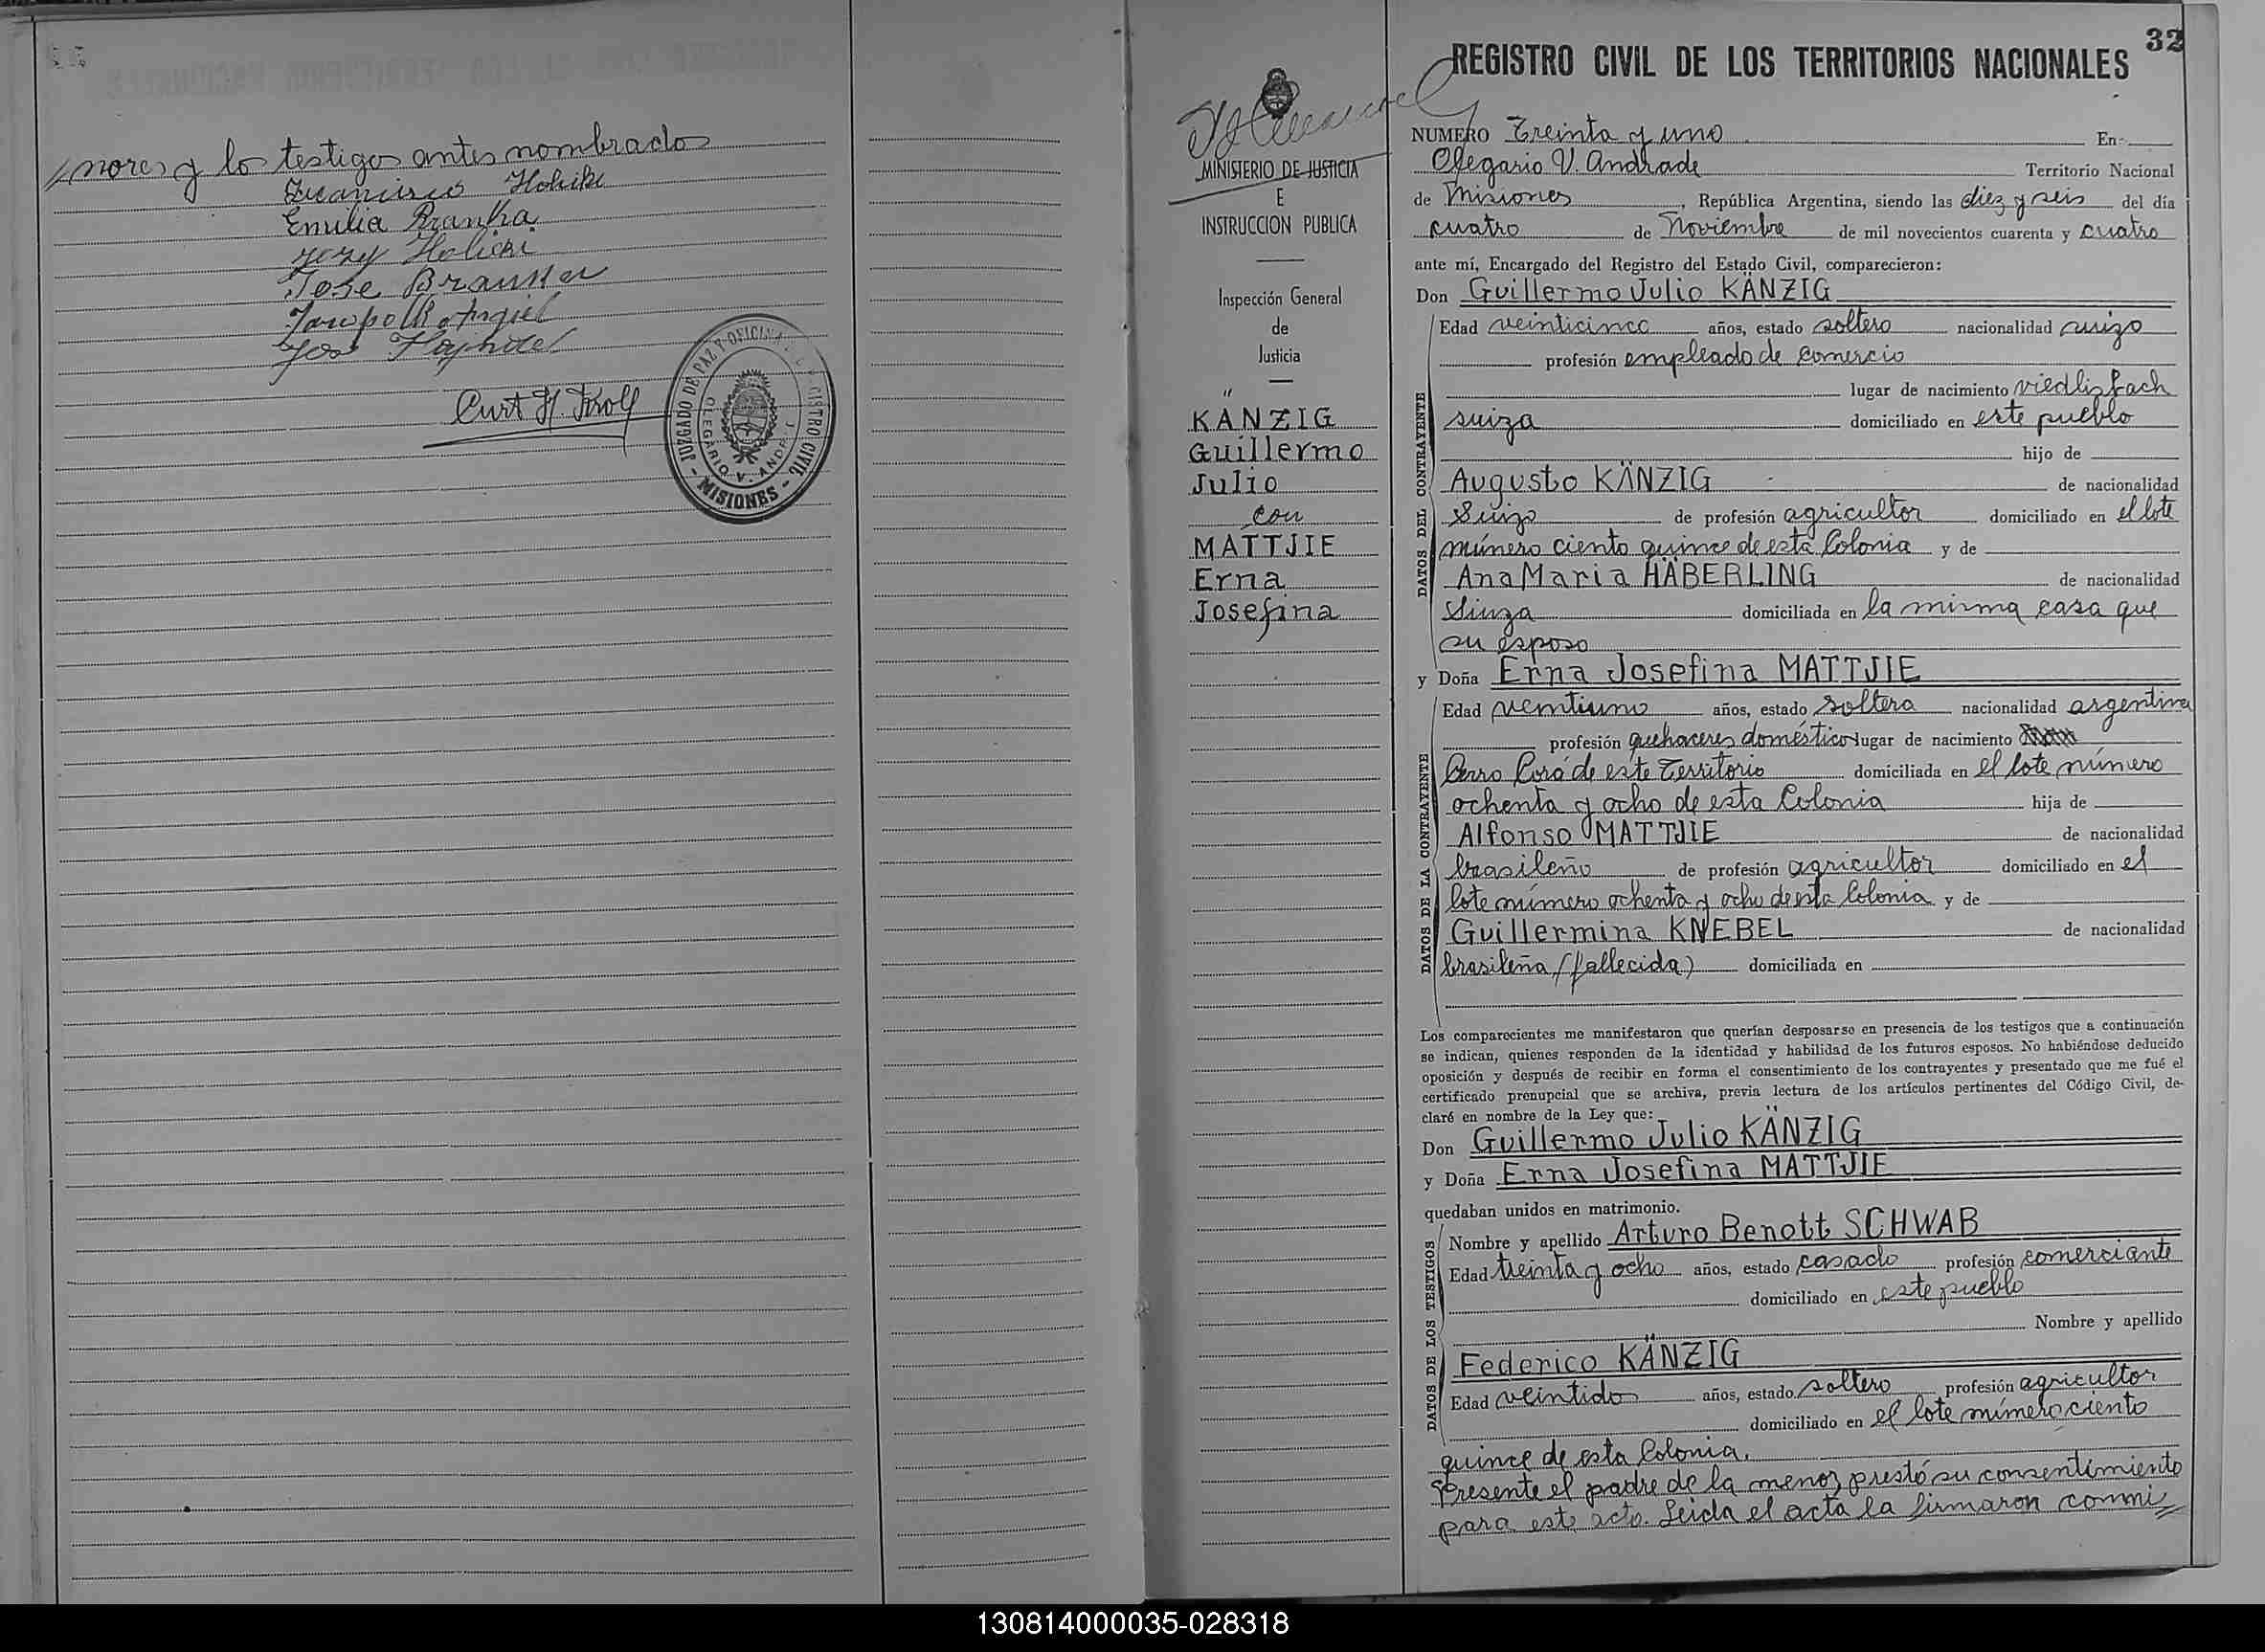 nores y los testigos antes nombrados
Francisco Holicki
Emilia Branka
Jozy Holicki
Jose
Curt H. Kroll
JUZGADO DE PAZ Y OFICINA REGISTRO CIVIL
OLEGARIO V. ANDR.
- MISIONES -
32
REGISTRO CIVIL DE LOS TERRITORIOS NACIONALES
MINISTERIO DE JUSTICIA
E
INSTRUCCION PUBLICA
Inspección General
de
Justicia
KÄNZIG
Guillermo
Julio
con
MATTJIE
Erna
Josefina
NUMERO Treinta y uno En
Olegario V. Andrade Territorio Nacional
de Misiones, República Argentina, siendo las diez y seis del día
cuatro de Noviembre de mil novecientos cuarenta y cuatro
ante mí, Encargado del Registro del Estado Civil, comparecieron:
Don Guillermo Julio KÄNZIG
DATOS DEL CONTRAYENTE
Edad veinticinco años, estado soltero nacionalidad suizo
profesión empleado de comercio
lugar de nacimiento viedlisbach
suiza domiciliado en este pueblo
hijo de
Augusto KÄNZIG de nacionalidad
Suizo de profesión agricultor domiciliado en el lote
número ciento quince de esta Colonia y de
Ana Maria HÄBERLING de nacionalidad
Suiza domiciliada en la misma casa que
su esposo
y Doña Erna Josefina MATTJIE
DATOS DE LA CONTRAYENTE
Edad veintiuno años, estado soltera nacionalidad argentina
profesión quehaceres domésticos lugar de nacimiento
Cerro Corá de este Territorio domiciliada en el lote número
ochenta y ocho de esta Colonia hija de
Alfonso MATTJIE de nacionalidad
brasileño de profesión agricultor domiciliado en el
lote número ochenta y ocho de esta Colonia y de
Guillermina KNEBEL de nacionalidad
brasileña (fallecida) domiciliada en
Los comparecientes me manifestaron que querían desposarse en presencia de los testigos que a continuación
se indican, quienes responden de la identidad y habilidad de los futuros esposos. No habiéndose deducido
oposición y después de recibir en forma el consentimiento de los contrayentes y presentado que me fué el
certificado prenupcial que se archiva, previa lectura de los artículos pertinentes del Código Civil, de-
claré en nombre de la Ley que:
Don Guillermo Julio KÄNZIG
y Doña Erna Josefina MATTJIE
quedaban unidos en matrimonio.
DATOS DE LOS TESTIGOS
Nombre y apellido Arturo Benott SCHWAB
Edad treinta y ocho años, estado casado profesión comerciante
domiciliado en este pueblo
Nombre y apellido
Federico KÄNZIG
Edad veintidos años, estado soltero profesión agricultor
domiciliado en el lote número ciento
quince de esta Colonia.
Presente el padre de la menor, prestó su consentimiento
para este acto. Leida el acta la firmaron conmi
130814000035-028318